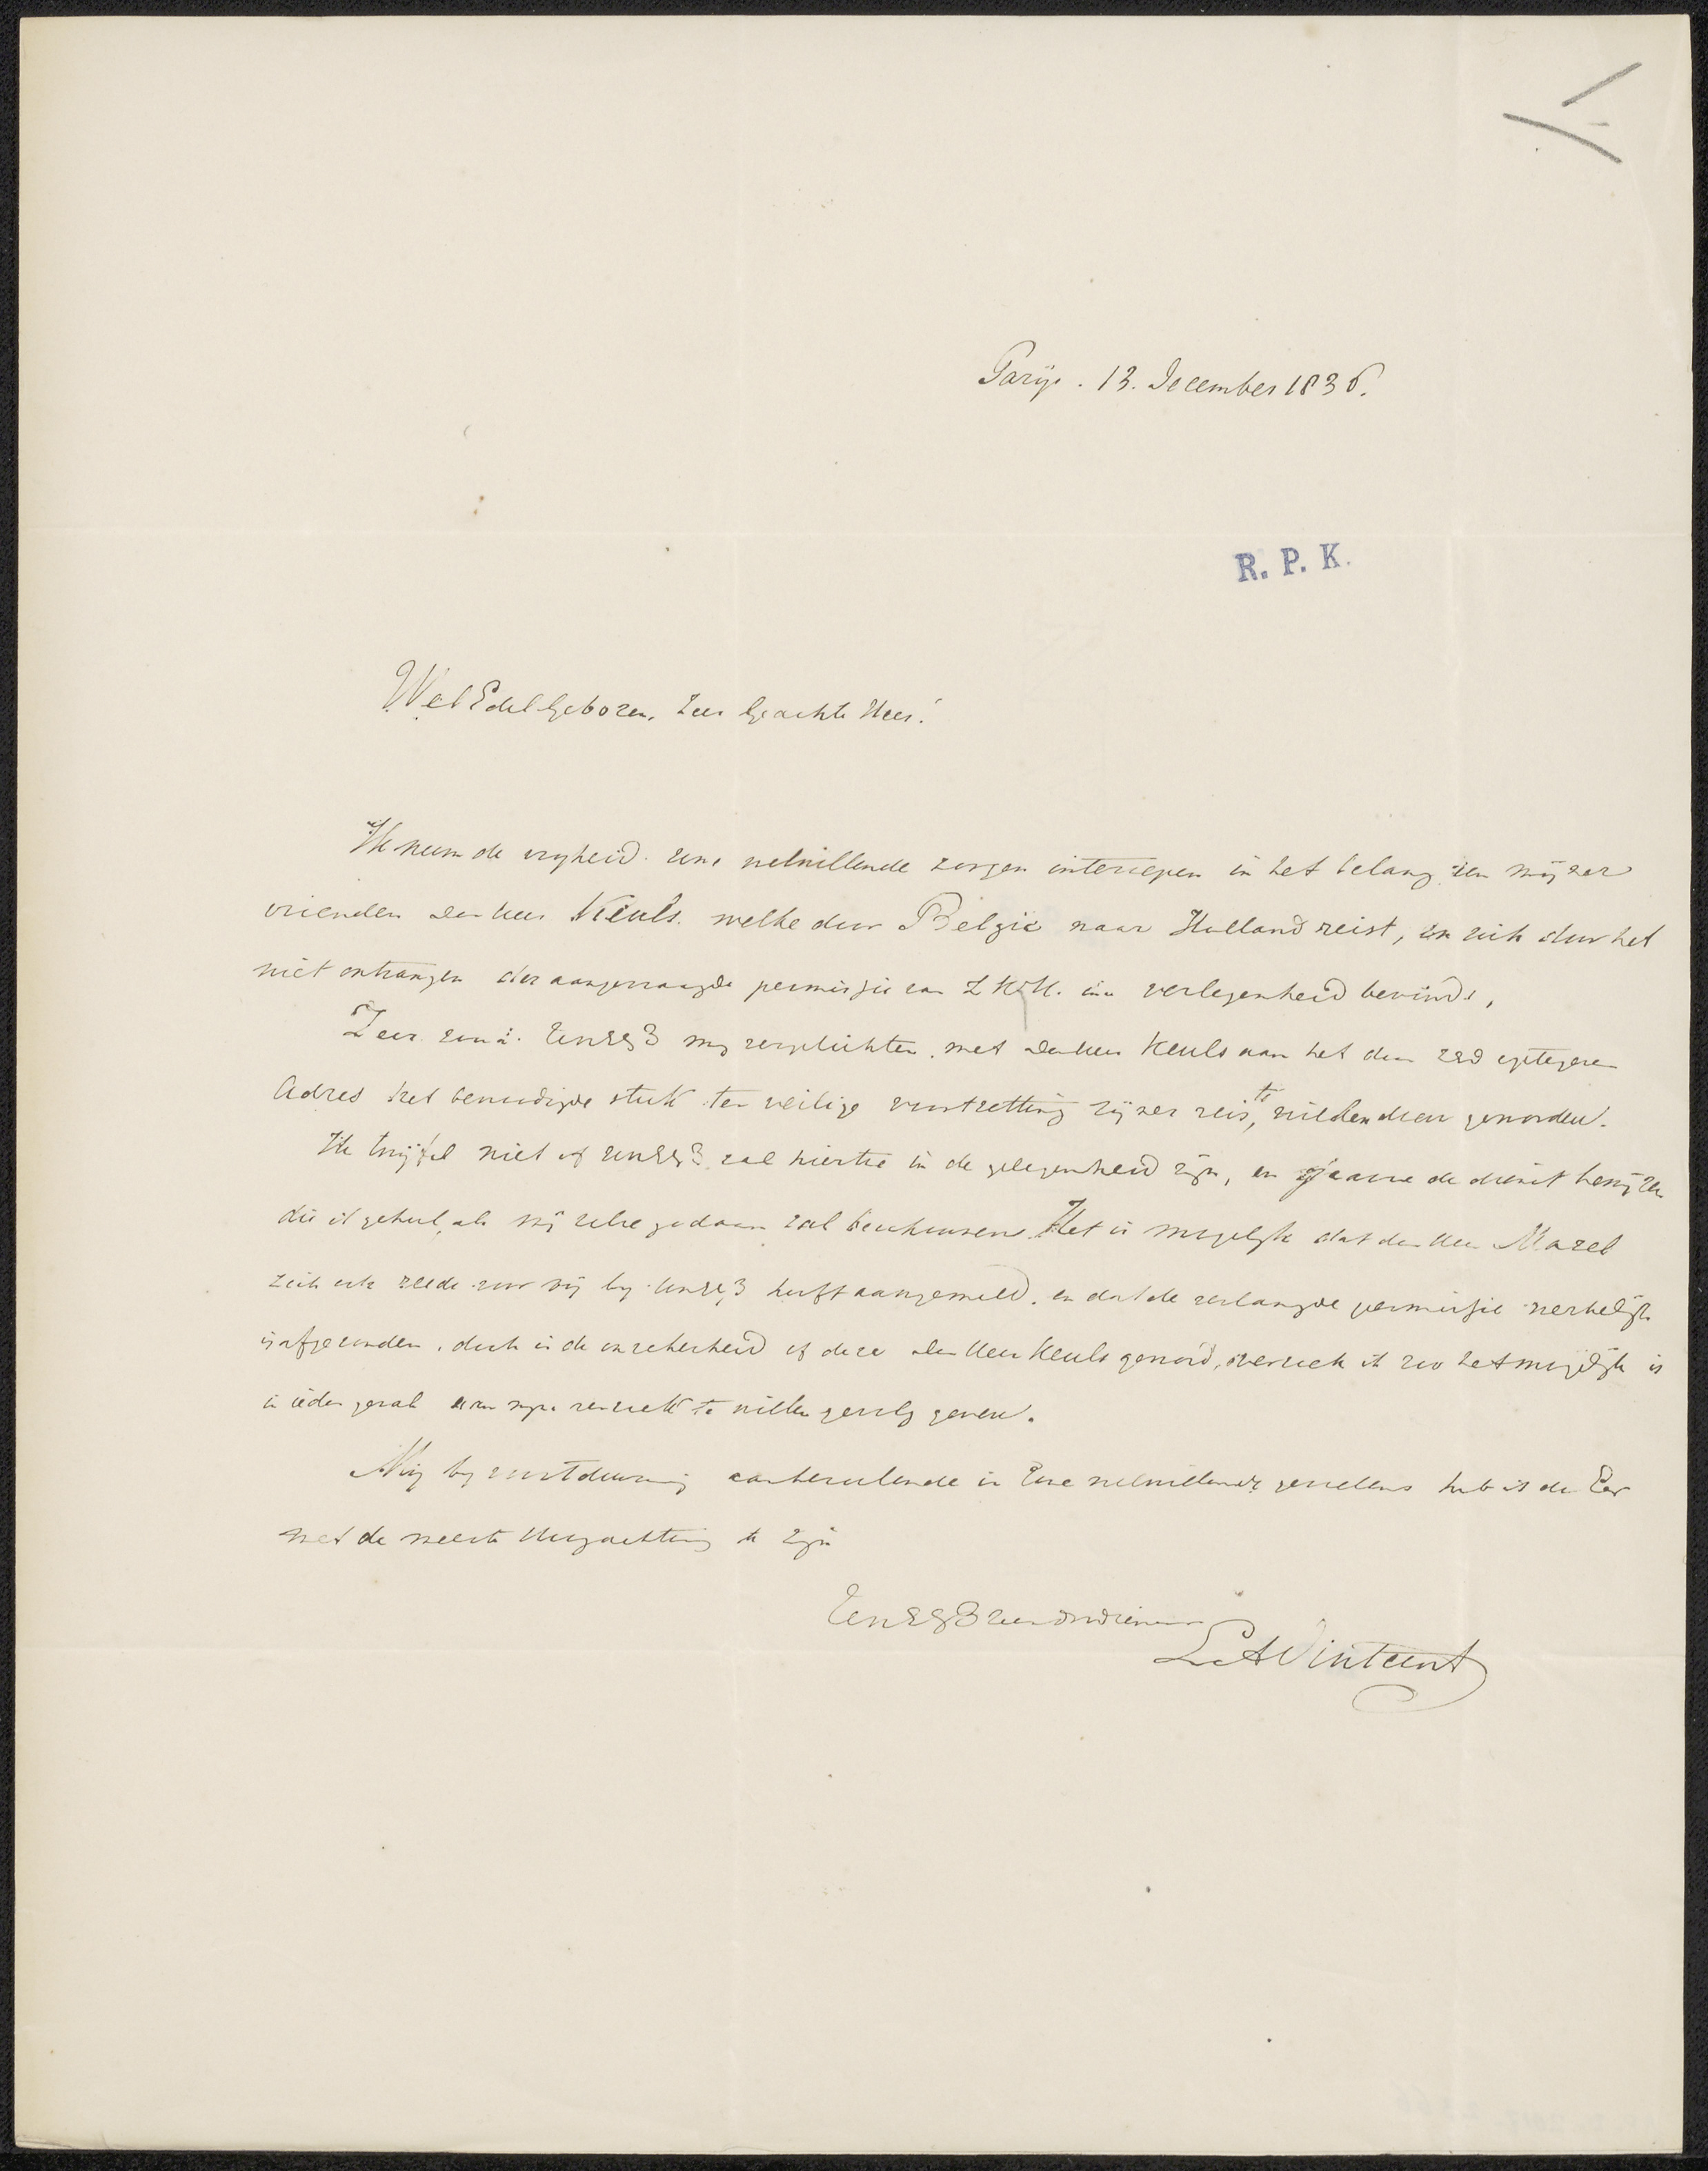 Parijs. 13. December 1836.
R. P. K.
WelEdelGeboren, Zeer Geachte Heer!
Ik neem de vryheid. Uwe welwillende zorgen interoepen in het belang van mijner
vrienden den heer Keuls. welke door België naar Holland reist, en zich door het
niet ontvangen der aangevraagde permissie van Z K H. in verlegenheid bevindt,
Zeer zou UwEG my verplichten, met den heer Keuls aan het door opgegeven
Adres het benoodigde stuk ter veilige voortzetting zijner reis, te willen doen geworden.
Ik twijfel niet of UwEG zal hiertoe in de gelegenheid zijn, en gaarne de dienst bewijzen
die ik geheel als mij zelve gedaan zal beschouwen. Het is mogelijk dat den heer Mazel
zich ook reede voor mij by UwEG heeft aangemeld. en dat de verlangde permissie werkelijk
is afgezonden. doch in de onzekerheid of deze den heer Keuls geword, verzoek ik zoo het mogelijk is
in ieder geval aan myn verzoek te willen gevolg geven.
Mij by voortduring aanbevelende in Uwe welwillende gevoelens heb ik de Eer
met de meeste Hoogachting te zijn
UwEG dienaar
L A Vintcent